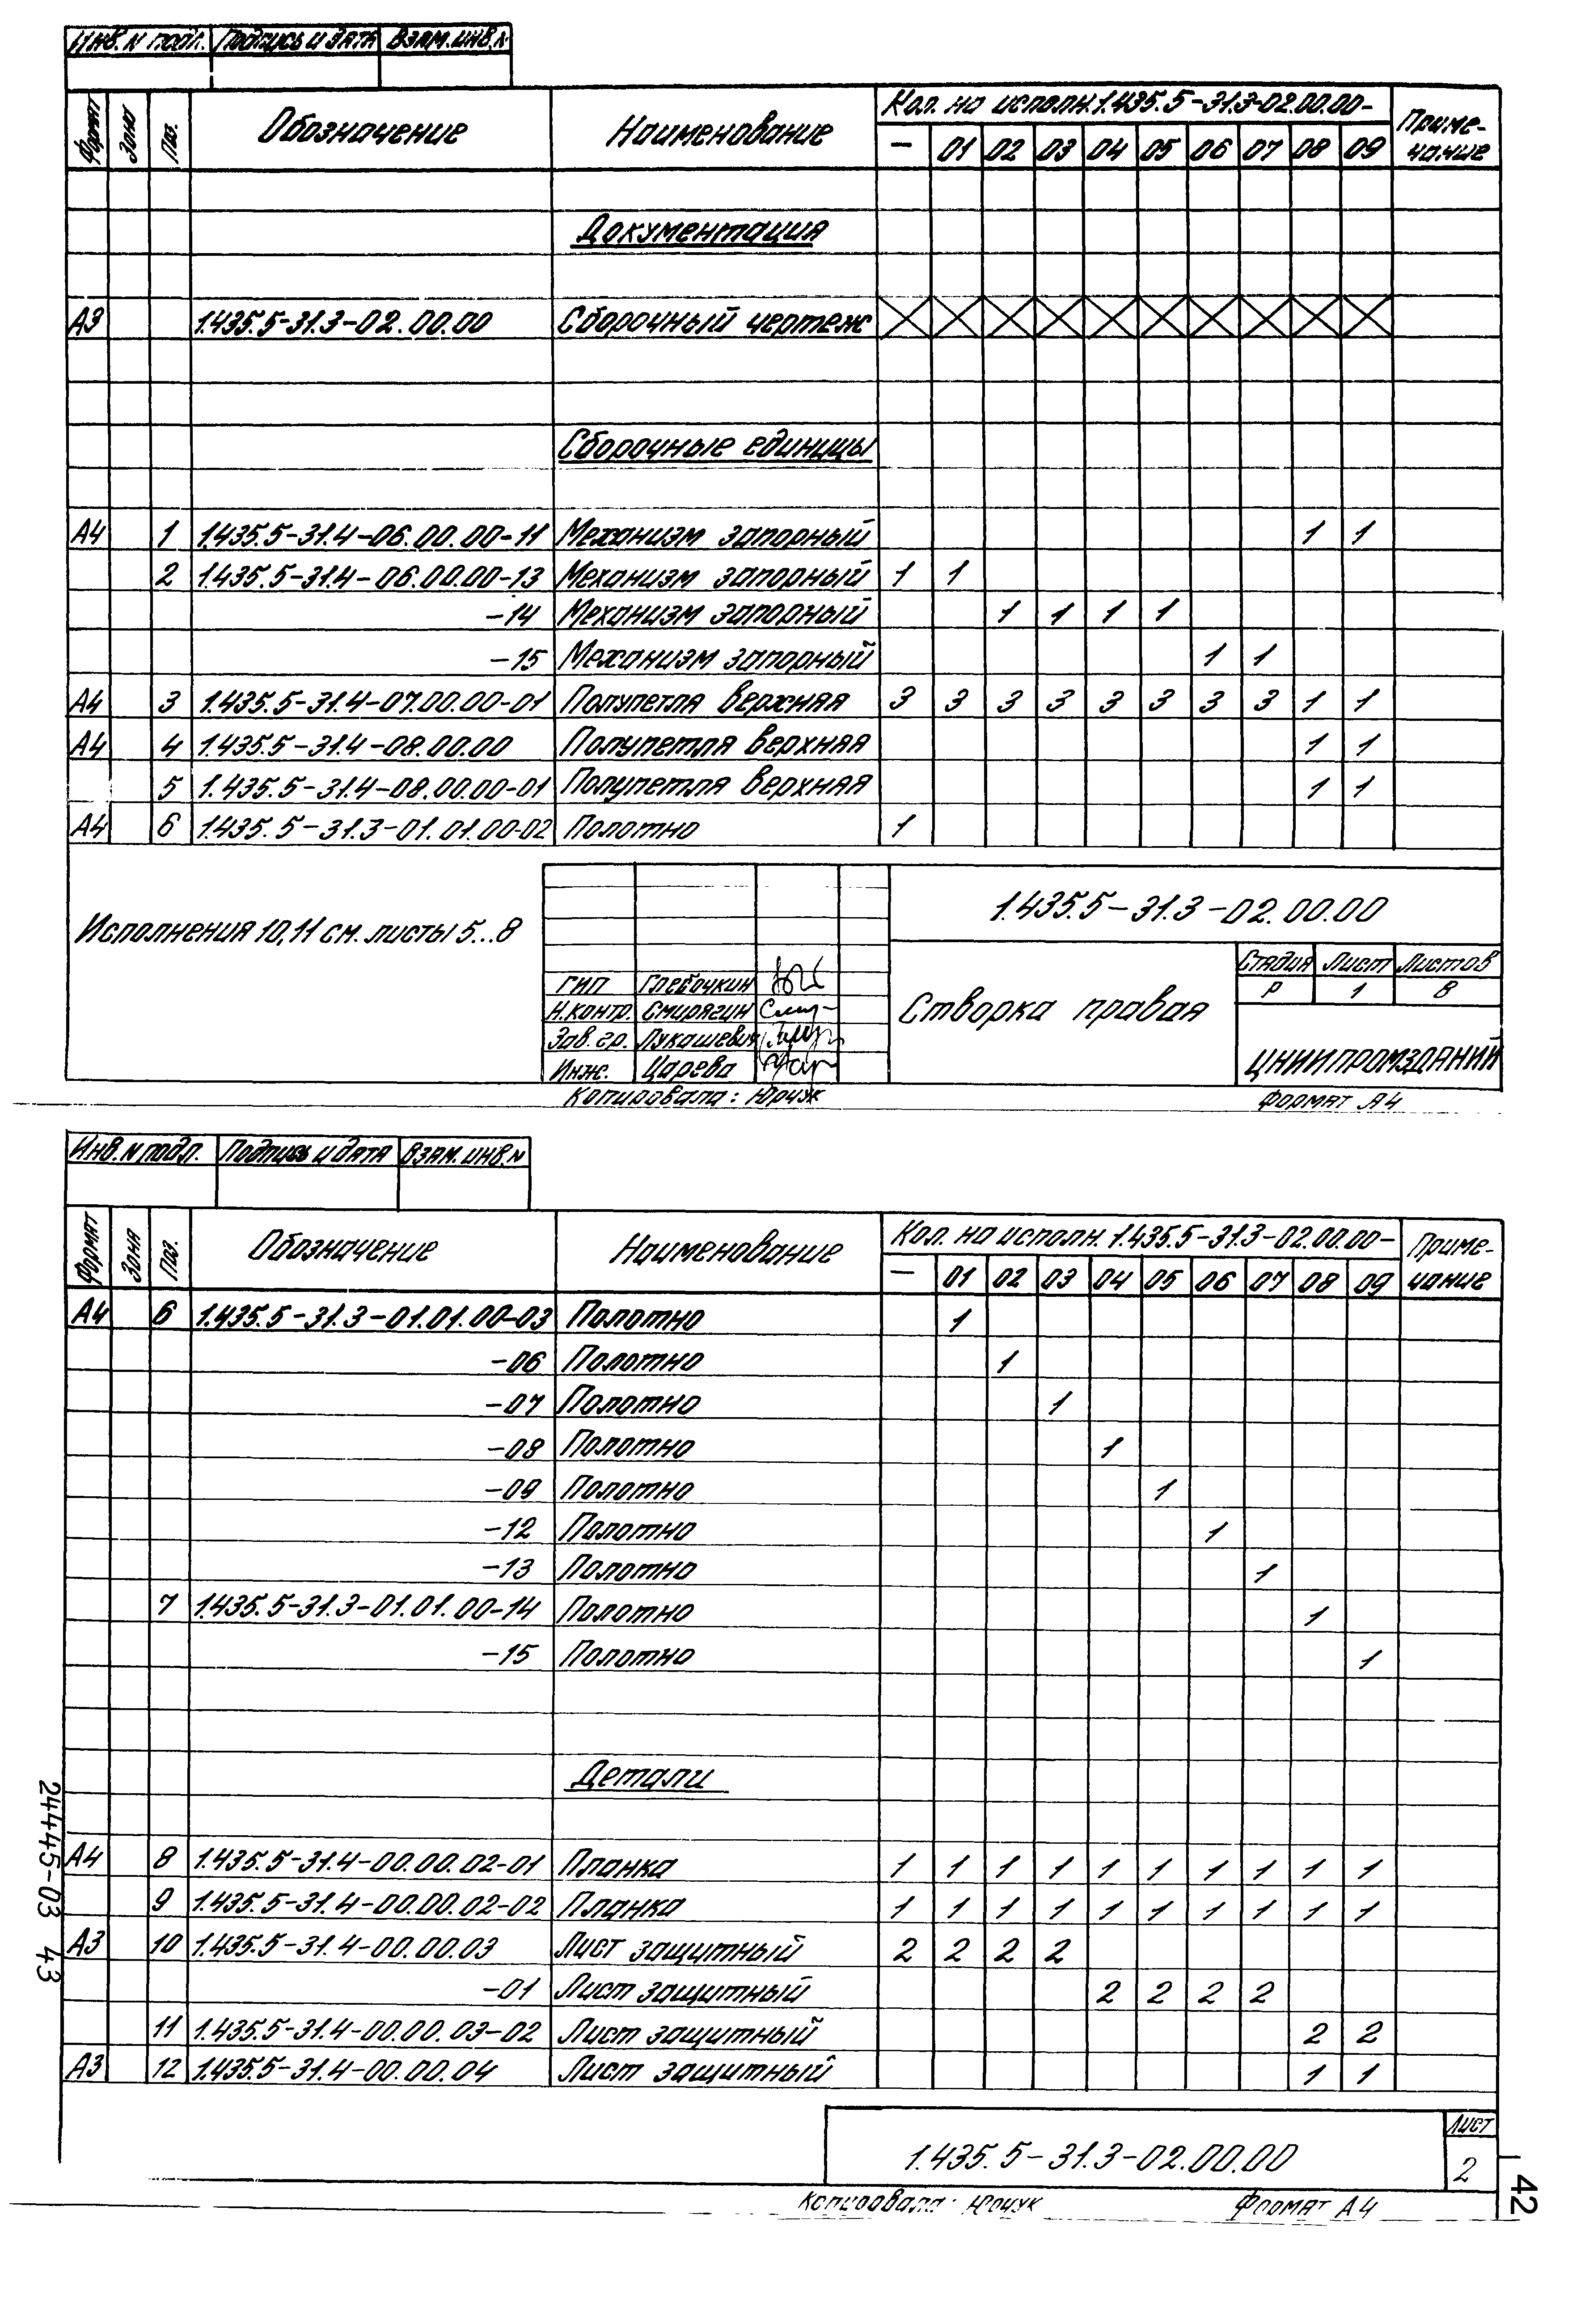 Инв. N подл. Подпись и дата Взам. инв. N
Формат Зона Поз. Обозначение Наименование Кол. на исполн. 1.435.5-31.3-02.00.00- Приме-
чание
— 01 02 03 04 05 06 07 08 09
Документация
А3 1.435.5-31.3-02.00.00 Сборочный чертеж
Сборочные единицы
А4 1 1.435.5-31.4-06.00.00-11 Механизм запорный 1 1
2 1.435.5-31.4-06.00.00-13 Механизм запорный 1 1
-14 Механизм запорный 1 1 1 1
-15 Механизм запорный 1 1
А4 3 1.435.5-31.4-07.00.00-01 Полупетля верхняя 3 3 3 3 3 3 3 3 1 1
А4 4 1.435.5-31.4-08.00.00 Полупетля верхняя 1 1
5 1.435.5-31.4-08.00.00-01 Полупетля верхняя 1 1
А4 6 1.435.5-31.3-01.01.00-02 Полотно 1
Исполнения 10,11 см. листы 5...8
1.435.5-31.3-02.00.00
ГИП Глебочкин
Н.контр. Смирягин
Зав. гр. Лукашевич
Инж. Царева
Створка правая
Стадия Лист Листов
Р 1 8
ЦНИИПРОМЗДАНИЙ
Копировала: Юрчук Формат А4
Инв. N подл. Подпись и дата Взам. инв. N
Формат Зона Поз. Обозначение Наименование Кол. на исполн. 1.435.5-31.3-02.00.00- Приме-
чание
— 01 02 03 04 05 06 07 08 09
А4 6 1.435.5-31.3-01.01.00-03 Полотно 1
-06 Полотно 1
-07 Полотно 1
-08 Полотно 1
-09 Полотно 1
-12 Полотно 1
-13 Полотно 1
7 1.435.5-31.3-01.01.00-14 Полотно 1
-15 Полотно 1
Детали
А4 8 1.435.5-31.4-00.00.02-01 Планка 1 1 1 1 1 1 1 1 1 1
9 1.435.5-31.4-00.00.02-02 Планка 1 1 1 1 1 1 1 1 1 1
А3 10 1.435.5-31.4-00.00.03 Лист защитный 2 2 2 2
-01 Лист защитный 2 2 2 2
11 1.435.5-31.4-00.00.03-02 Лист защитный 2 2
А3 12 1.435.5-31.4-00.00.04 Лист защитный 1 1
1.435.5-31.3-02.00.00
Лист
2
Копировала: Юрчук Формат А4
24445-03 43
42